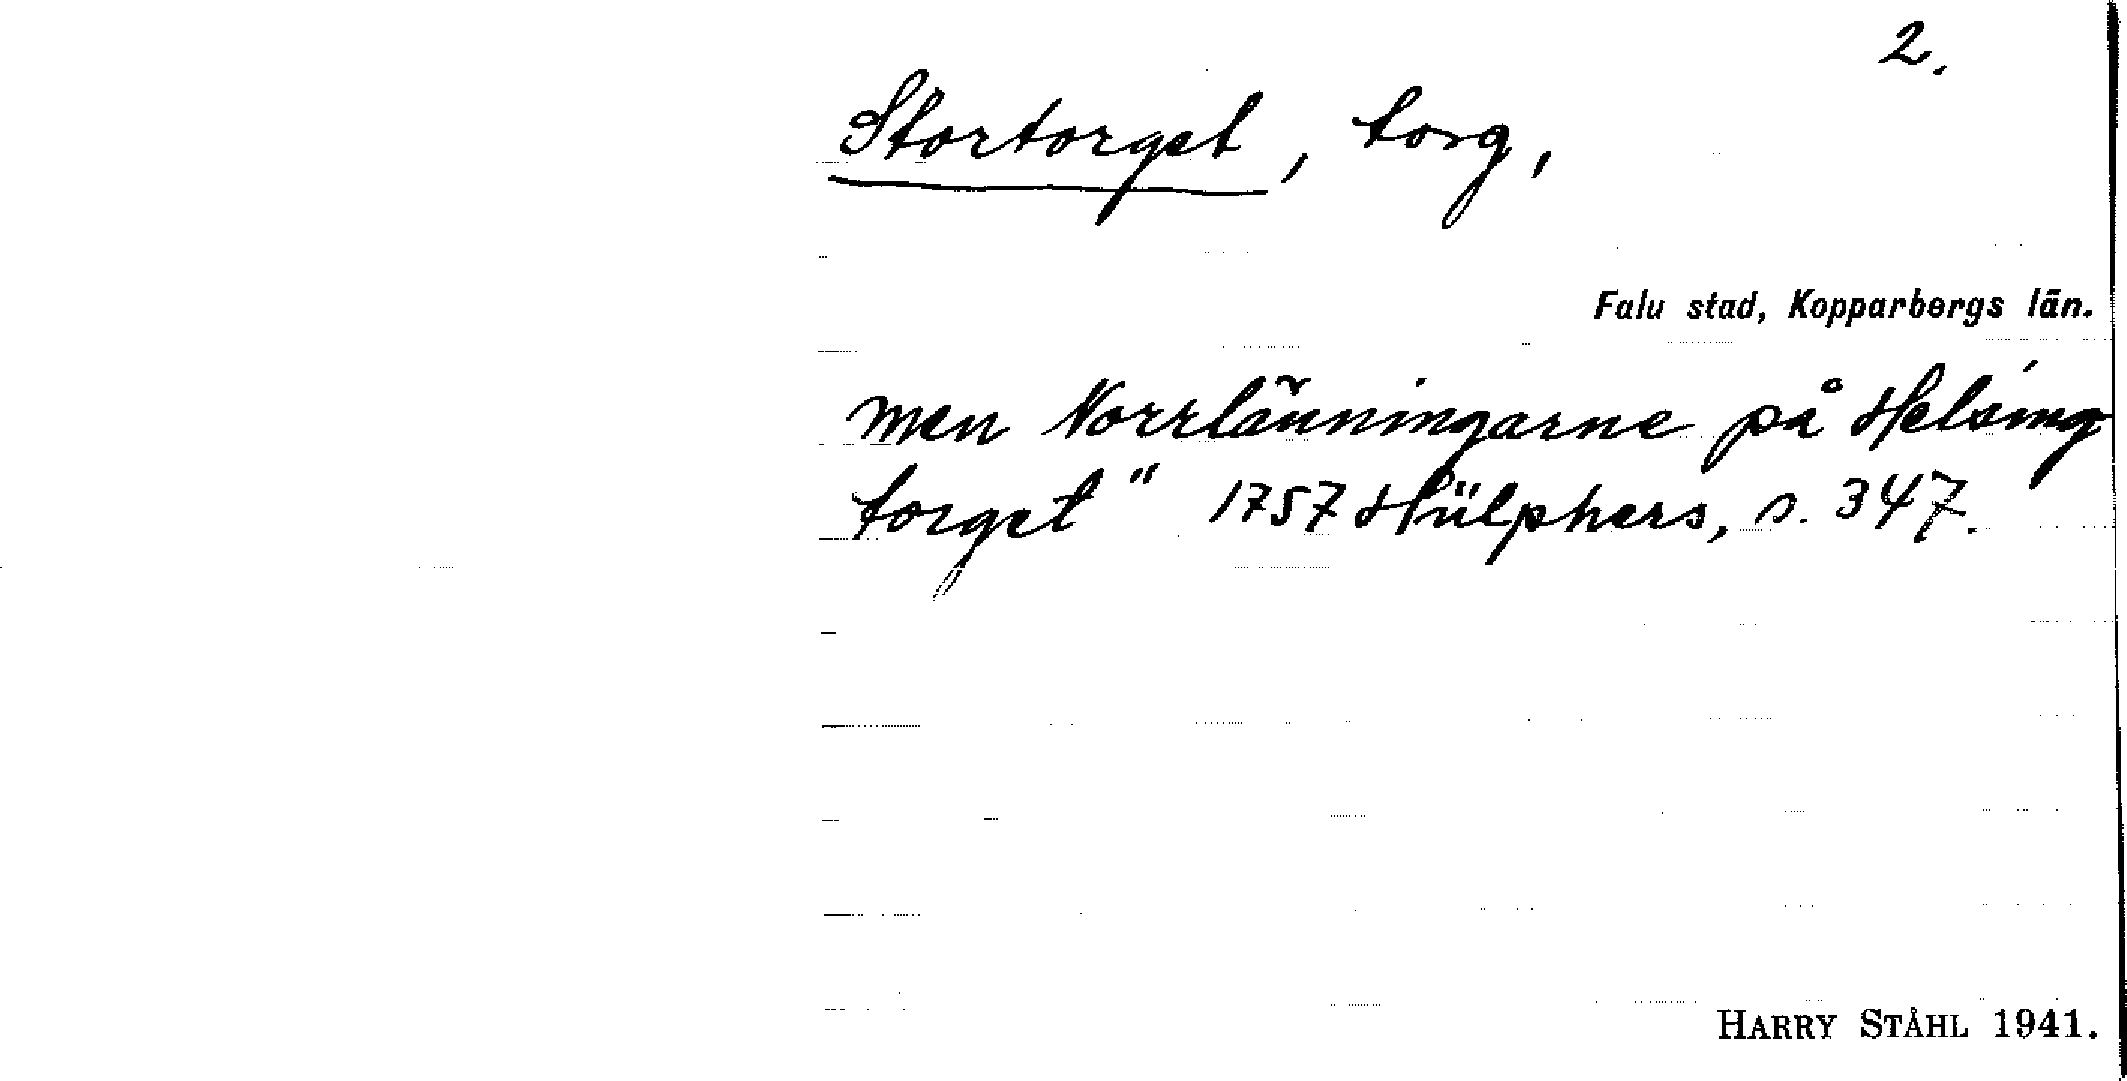 2.
Stortorget, torg,
Falu stad, Kopparbergs län.
men Norrlänningarne på Helsing
torget" 1757 Hülphers, s. 347.
HARRY STÅHL 1941.